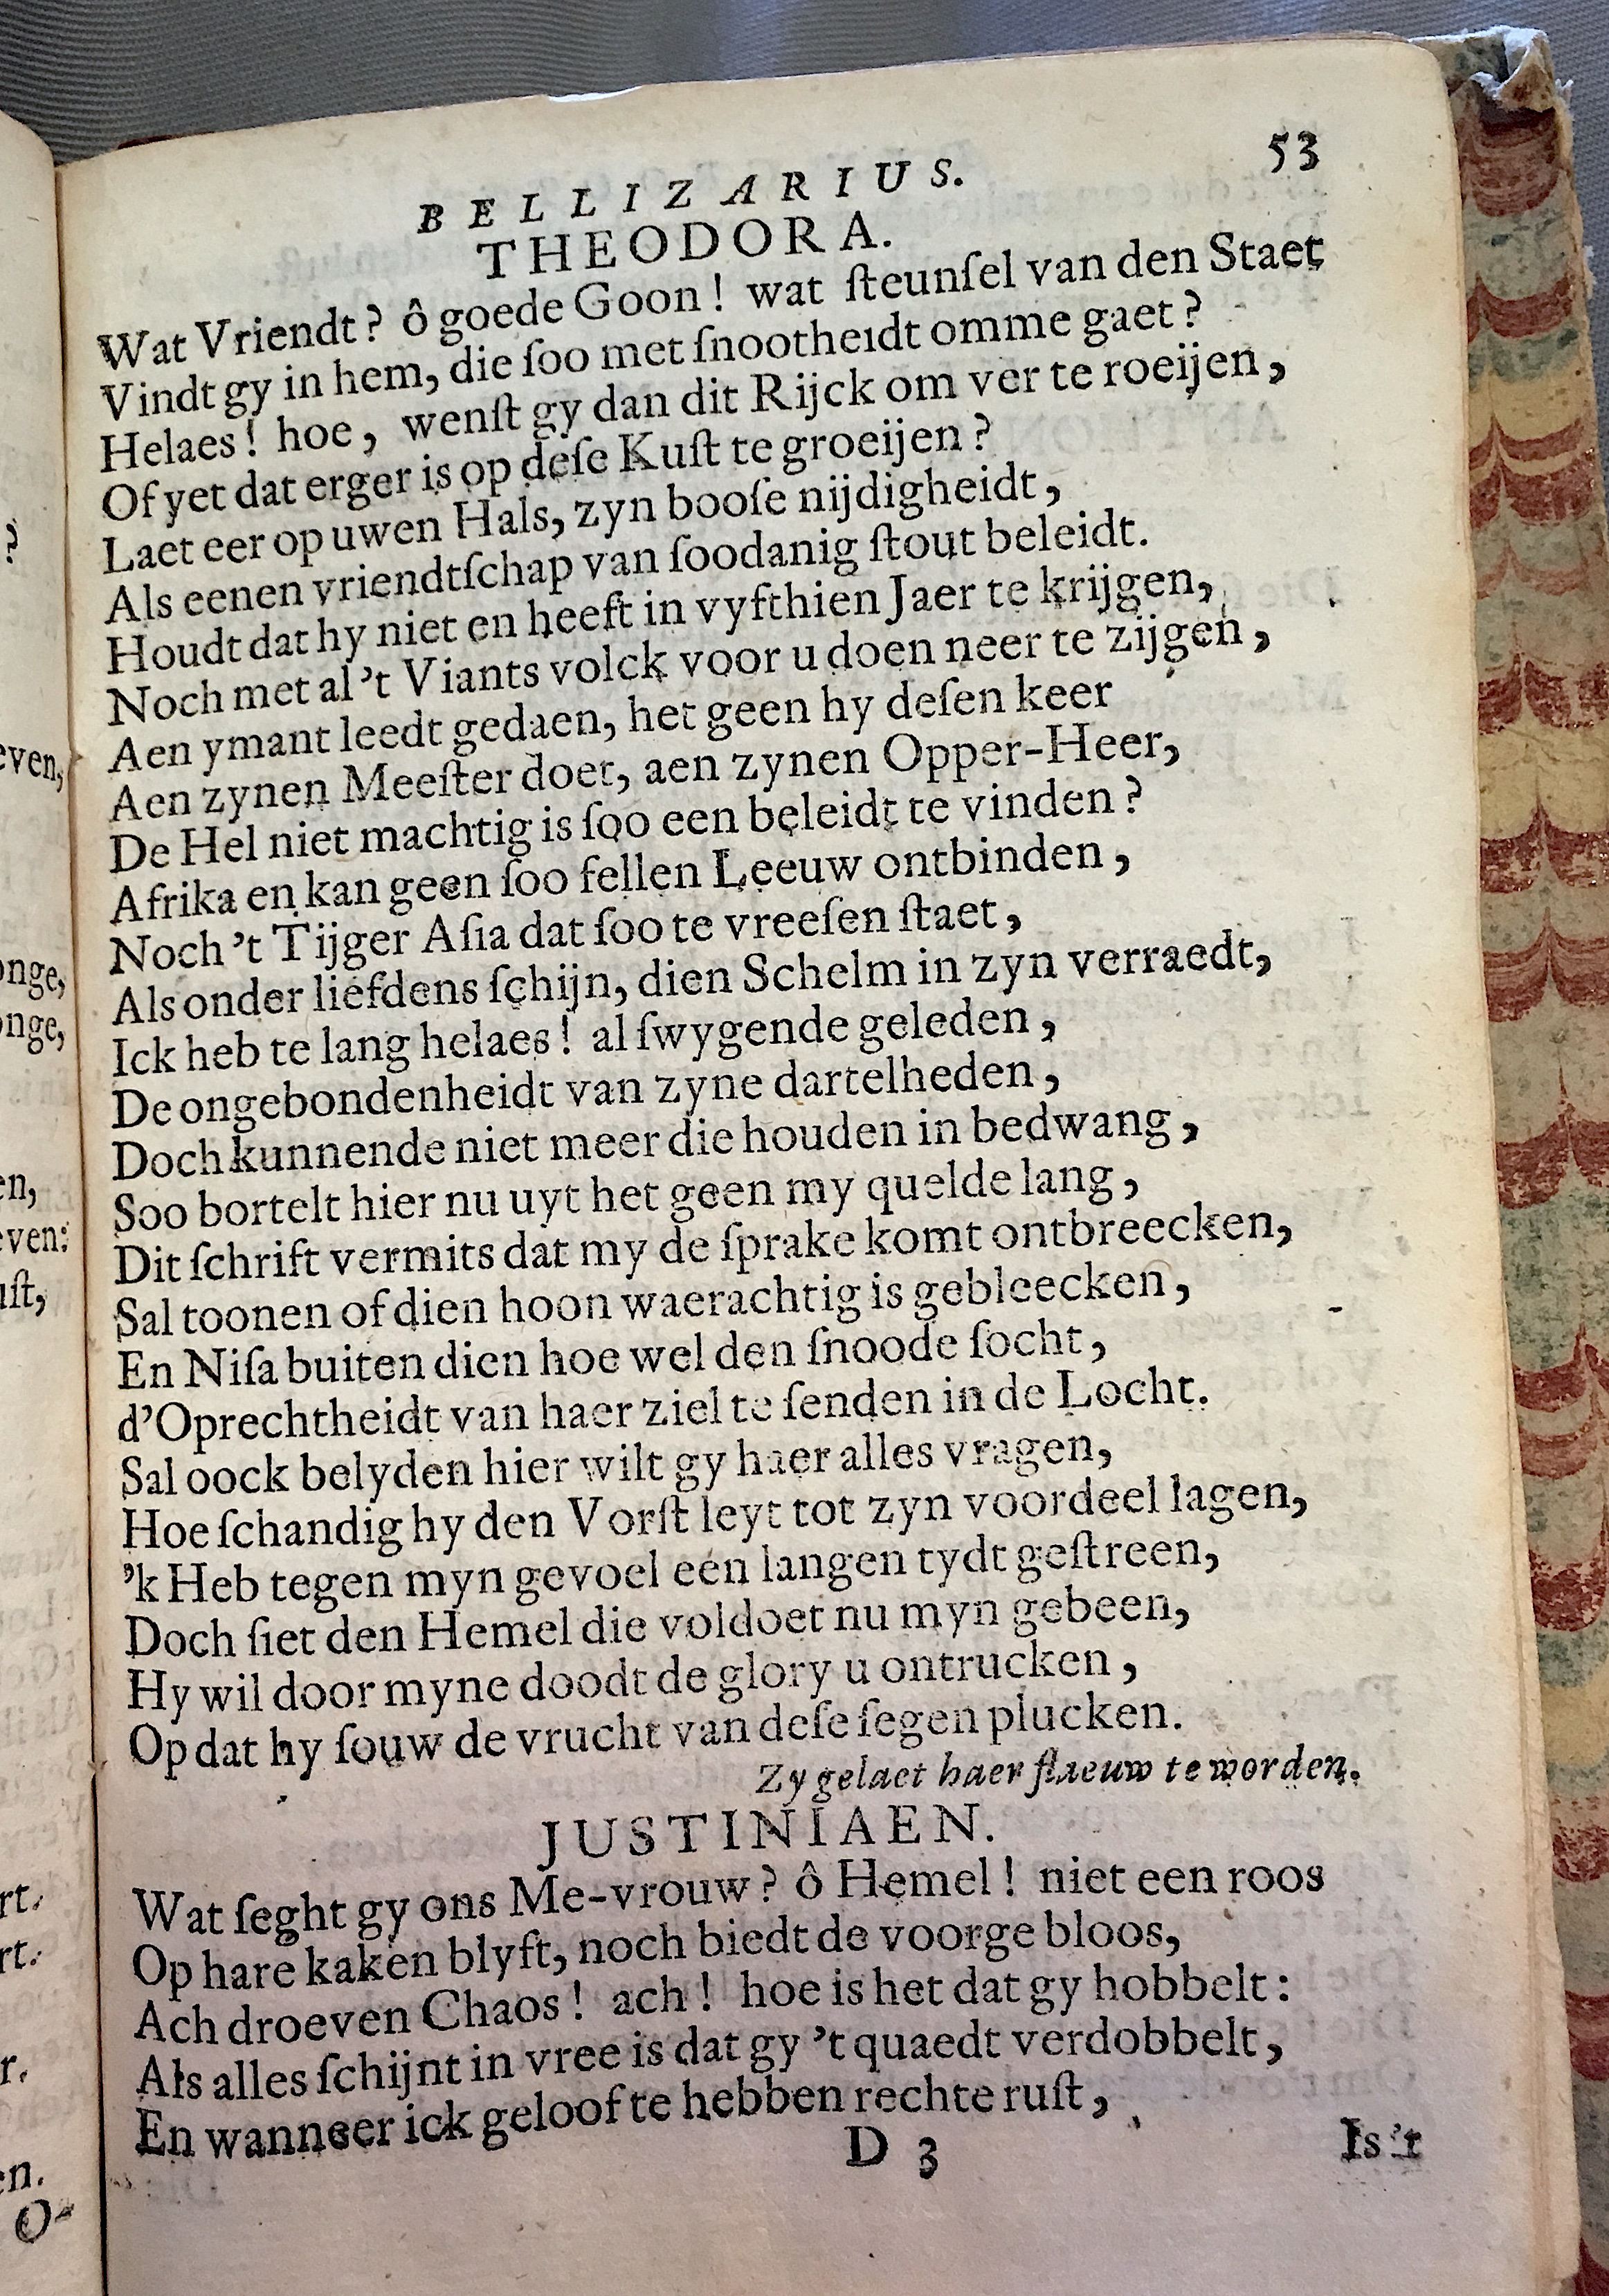 53
BELLIZARIUS.
THEODORA.
Wat Vriendt? ô goede Goon! wat ſteunſel van den Staet
Vindt gy in hem, die ſoo met ſnootheidt omme gaet?
Helaes! hoe, wenſt gy dan dit Rijck om ver te roeijen,
Of yet dat erger is op deſe Kuſt te groeijen?
Laet eer op uwen Hals, zyn booſe nijdigheidt,
Als eenen vriendtſchap van ſoodanig ſtout beleidt.
Houdt dat hy niet en heeft in vyfthien Jaer te krijgen,
Noch met al 't Viants volck voor u doen neer te zijgen,
Aen ymant leedt gedaen, het geen hy deſen keer
Aen zynen Meeſter doet, aen zynen Opper-Heer,
De Hel niet machtig is ſoo een beleidt te vinden?
Afrika en kan geen ſoo fellen Leeuw ontbinden,
Noch 't Tijger Aſia dat ſoo te vreeſen ſtaet,
Als onder liefdens ſchijn, dien Schelm in zyn verraedt,
Ick heb te lang helaes! al ſwygende geleden,
De ongebondenheidt van zyne dartelheden,
Doch kunnende niet meer die houden in bedwang,
Soo bortelt hier nu uyt het geen my quelde lang,
Dit ſchrift vermits dat my de ſprake komt ontbreecken,
Sal toonen of dien hoon waerachtig is gebleecken,
En Niſa buiten dien hoe wel den ſnoode ſocht,
d'Oprechtheidt van haer ziel te ſenden in de Locht.
Sal oock belyden hier wilt gy haer alles vragen,
Hoe ſchandig hy den Vorſt leyt tot zyn voordeel lagen,
'k Heb tegen myn gevoel een langen tydt geſtreen,
Doch ſiet den Hemel die voldoet nu myn gebeen,
Hy wil door myne doodt de glory u ontrucken,
Op dat hy ſouw de vrucht van deſe ſegen plucken.
Zy gelaet haer flaeuw te worden.
JUSTINIAEN.
Wat ſeght gy ons Me-vrouw? ô Hemel! niet een roos
Op hare kaken blyft, noch biedt de voorge bloos,
Ach droeven Chaos! ach! hoe is het dat gy hobbelt:
Als alles ſchijnt in vree is dat gy 't quaedt verdobbelt,
En wanneer ick geloof te hebben rechte ruſt,
D 3
Is 't
?
even,
onge,
onge,
en,
even:
uſt,
rt.
rt.
r.
en.
O-